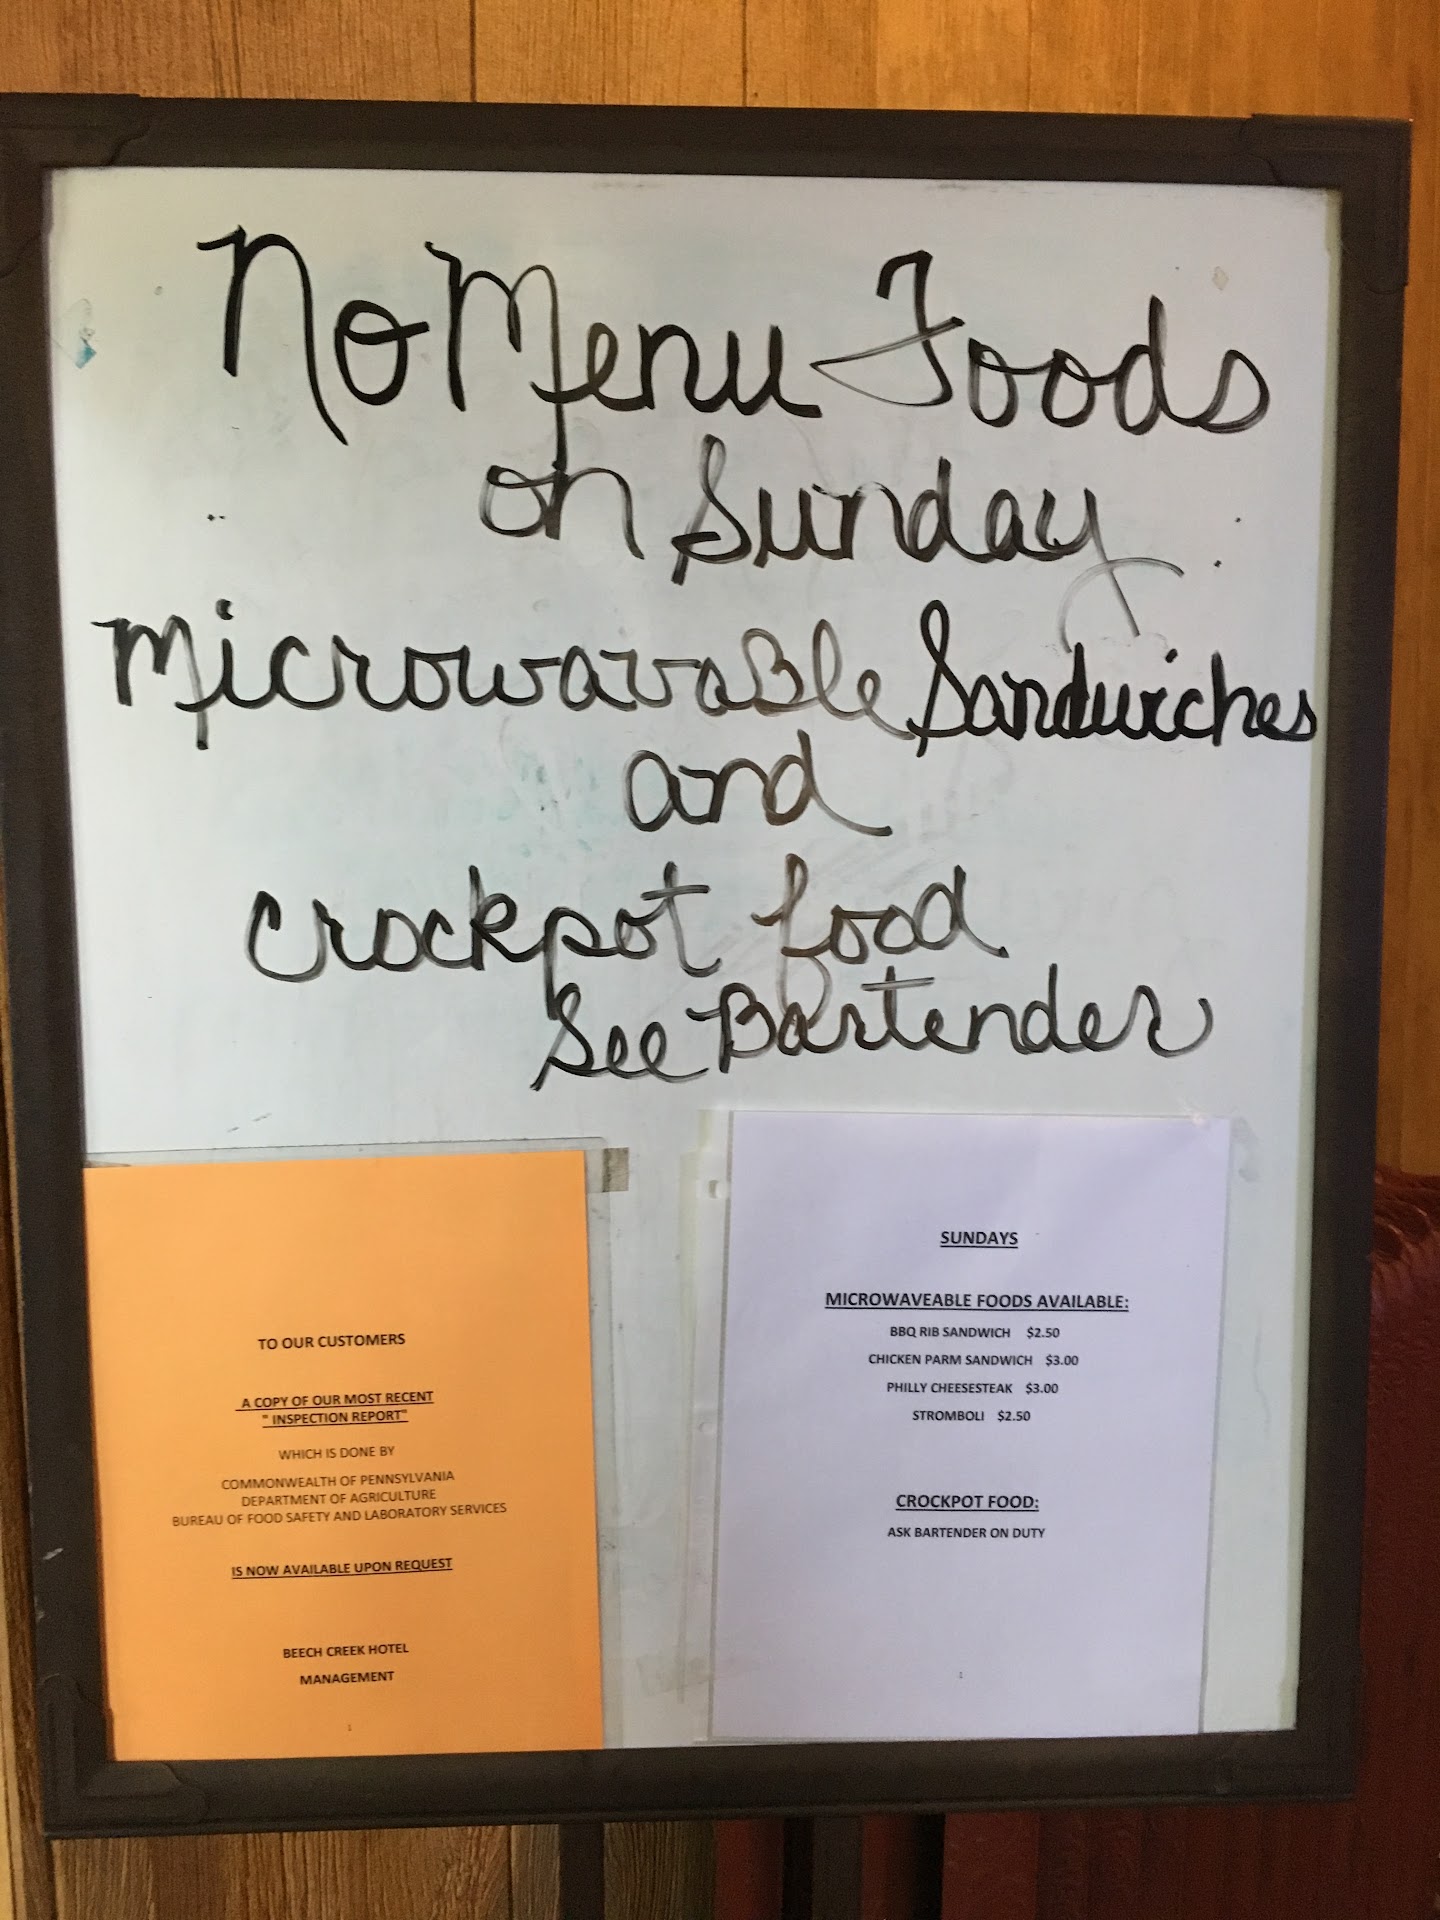 No Menu Foods
on Sunday
Microwavable Sandwiches
and
Crockpot food
See Bartender
TO OUR CUSTOMERS
A COPY OF OUR MOST RECENT
" INSPECTION REPORT"
WHICH IS DONE BY
COMMONWEALTH OF PENNSYLVANIA
DEPARTMENT OF AGRICULTURE
BUREAU OF FOOD SAFETY AND LABORATORY SERVICES
IS NOW AVAILABLE UPON REQUEST
BEECH CREEK HOTEL
MANAGEMENT
1
SUNDAYS
MICROWAVEABLE FOODS AVAILABLE:
BBQ RIB SANDWICH $2.50
CHICKEN PARM SANDWICH $3.00
PHILLY CHEESESTEAK $3.00
STROMBOLI $2.50
CROCKPOT FOOD:
ASK BARTENDER ON DUTY
1